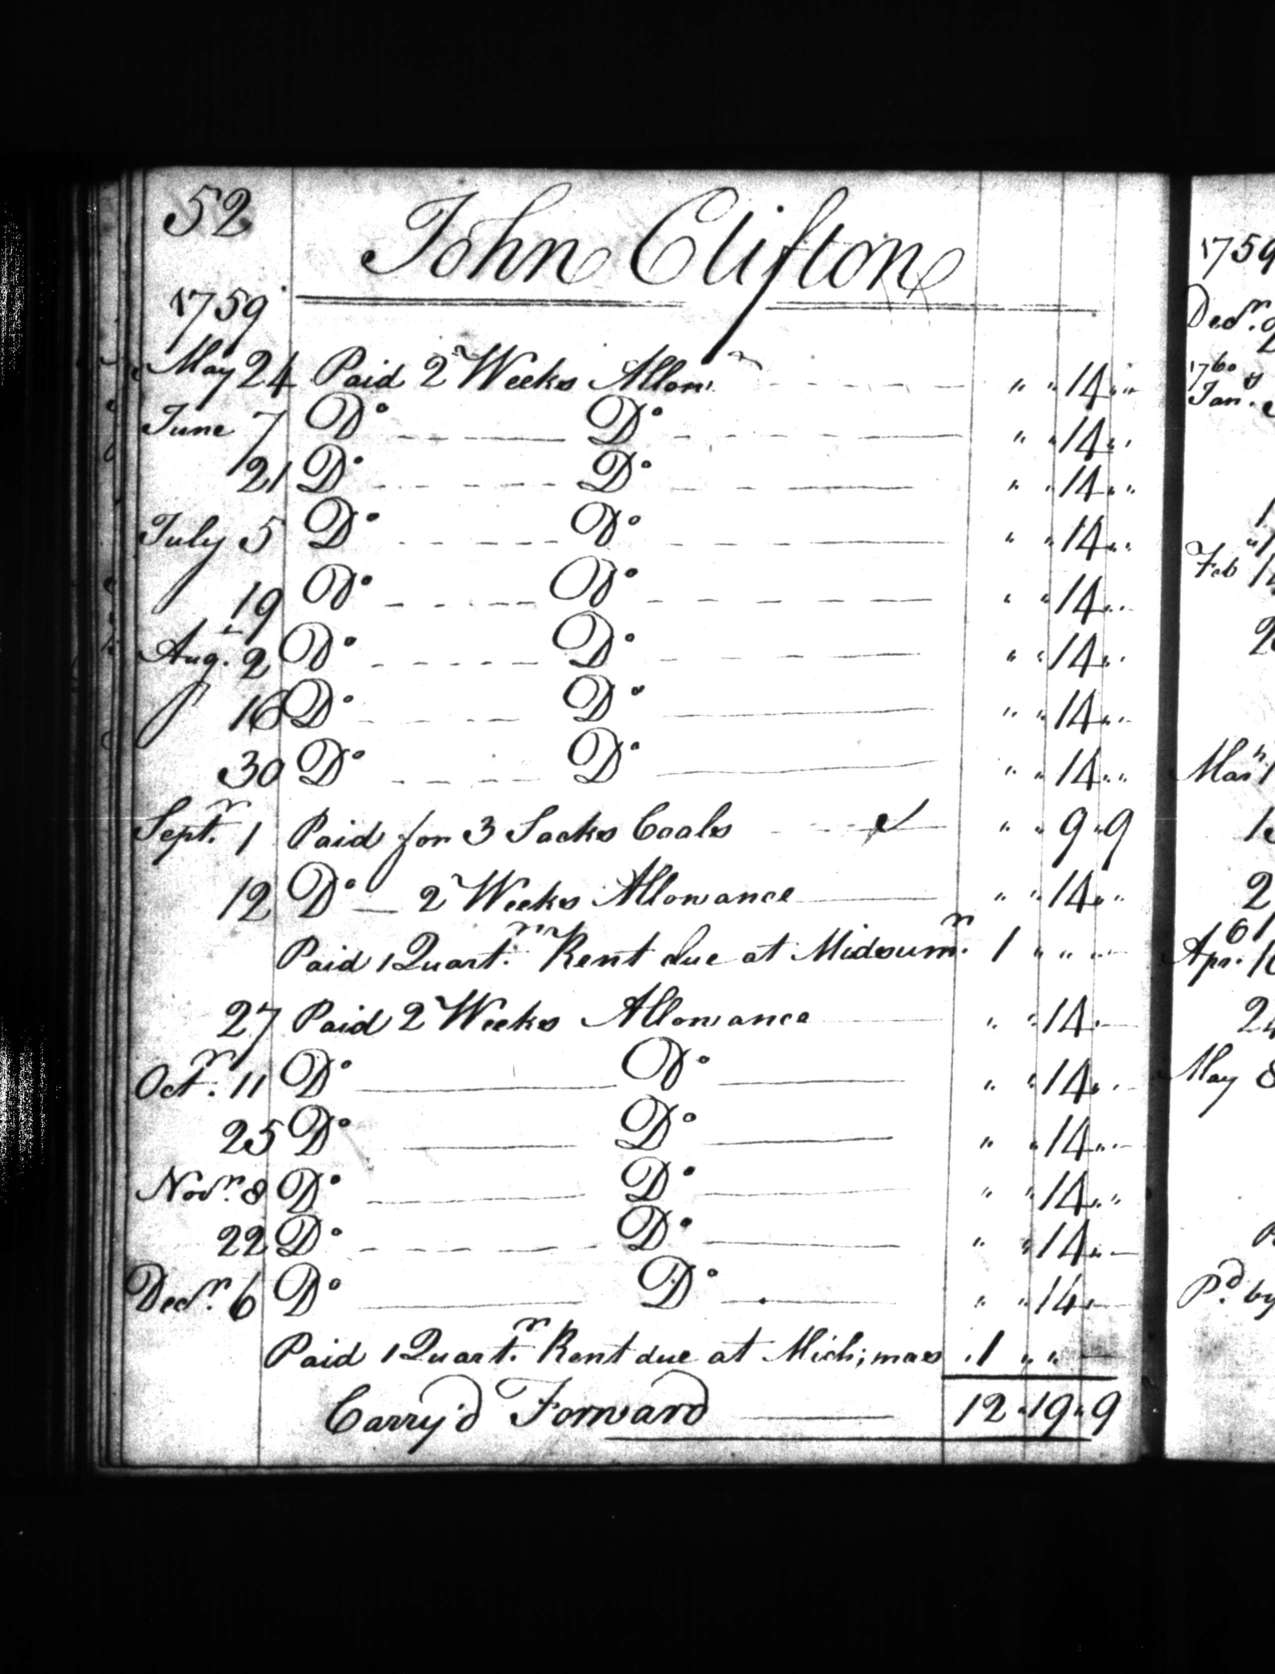 52
John Clifton
1759
May 24 Paid 2 Weeks Allow. " " 14 " "
June 7 Do Do " " 14 " "
21 Do Do " " 14 " "
July 5 Do Do " " 14 " "
19 Do Do " " 14 " "
Augt. 2 Do Do " " 14 " "
16 Do Do " " 14 " "
30 Do Do " " 14 " "
Septr. 1 Paid for 3 Sacks Coals " " 9 " 9
12 Do 2 Weeks Allowance " " 14 " "
Paid 1 Quartr. Rent due at Midsumr. 1 " " "
27 Paid 2 Weeks Allowance " " 14 "
Octr. 11 Do Do " " 14 " "
25 Do Do " " 14 " "
Novr. 8 Do Do " " 14 " "
22 Do Do " " 14 "
Decr. 6 Do Do " " 14 "
Paid 1 Quartr. Rent due at Mich;mas 1 " "
Carry'd Forward 12 " 19 " 9
1759
Decr.
1760
Feb
Mar
Apr.
24
May 8
Pd by